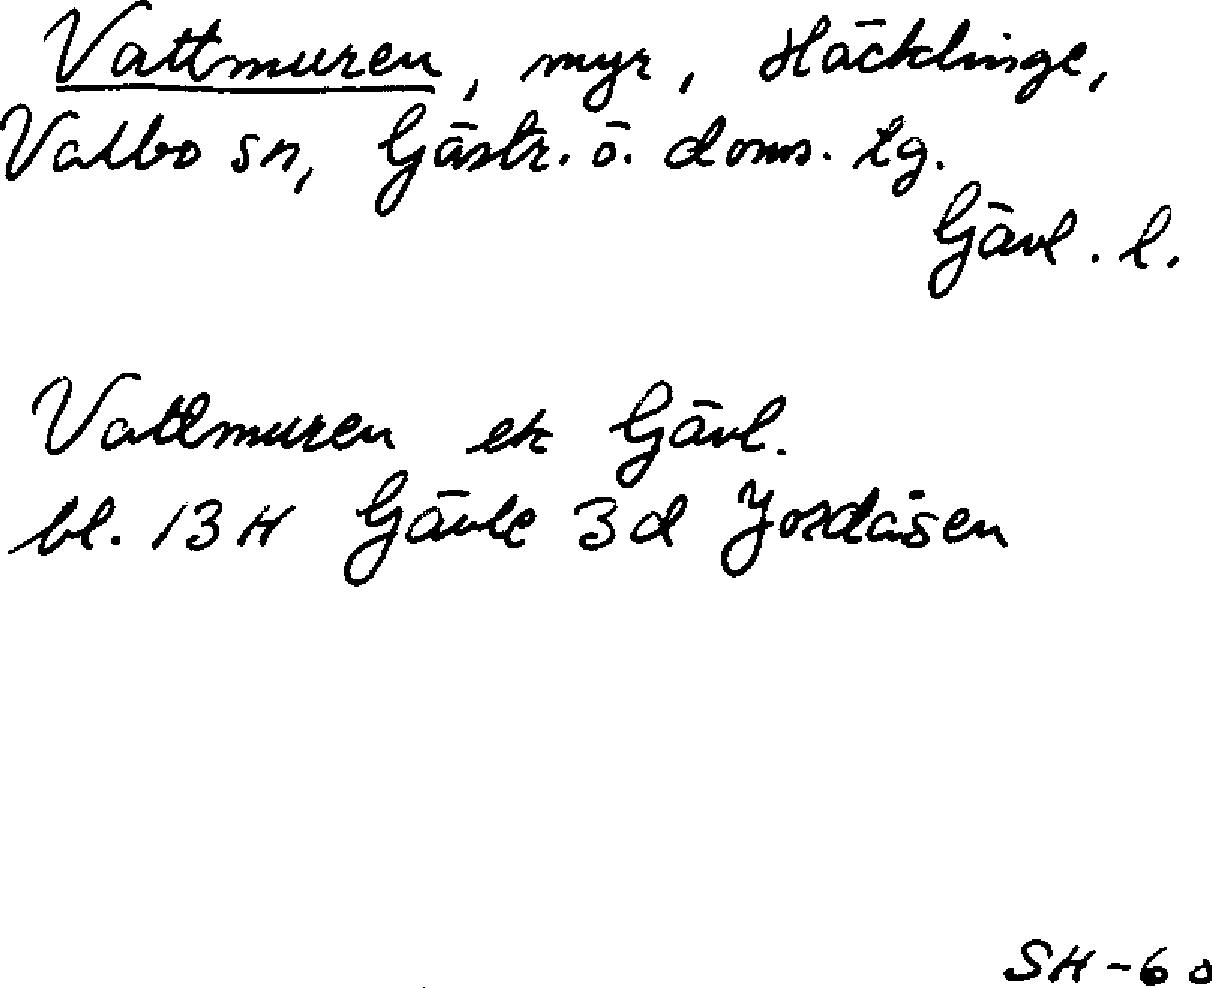 Vattmuren, myr, Häcklinge,
Valbo sn, Gästr. ö. doms. tg.
Gävl. l.
Vattmuren ek Gävl.
bl. 13 H Gävle 3 d Jordåsen
SH-60